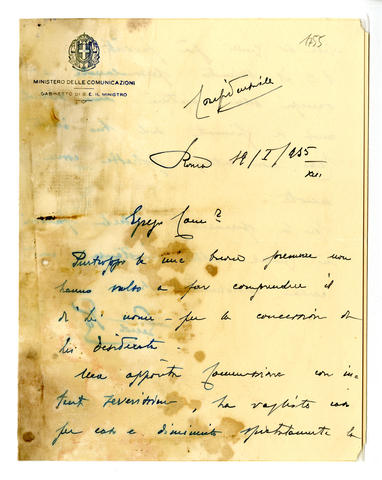 1255
MINISTERO DELLE COMUNICAZIONI
GABINETTO DI S. E. IL MINISTRO
Confidenziale
Roma 19/I/935
XIII
Egregio Comm.
Purtroppo le mie premure non
hanno valso a far comprendere il
di Lei nome - per la concessione da
Lei desiderata.
Una apposita Commissione con in=
tenti severissimi, ha vagliato caso
per caso e diminuito spietatamente la